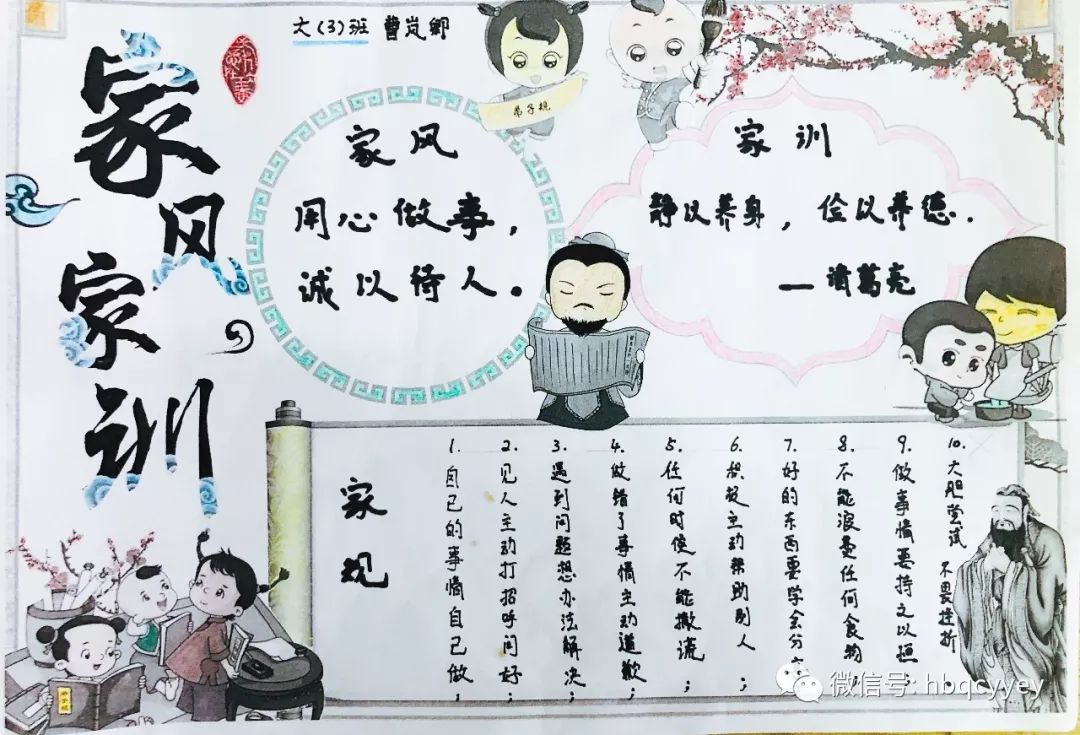 家风
家训
大(3)班 曹岚卿
弟子规
家风
用心做事，
诚以待人。
家训
静以养身，俭以养德.
—诸葛亮
家规
1. 自己的事情自己做；
2. 见人主动打招呼问好；
3. 遇到问题想办法解决；
4. 做错了事情主动道歉；
5. 任何时候不能撒谎；
6. 积极主动帮助别人；
7. 好的东西要学会分
8. 不能浪费任何食物；
9. 做事情要持之以恒；
10. 大胆尝试 不畏挫折
弟子规
微信号: hbqcyyey